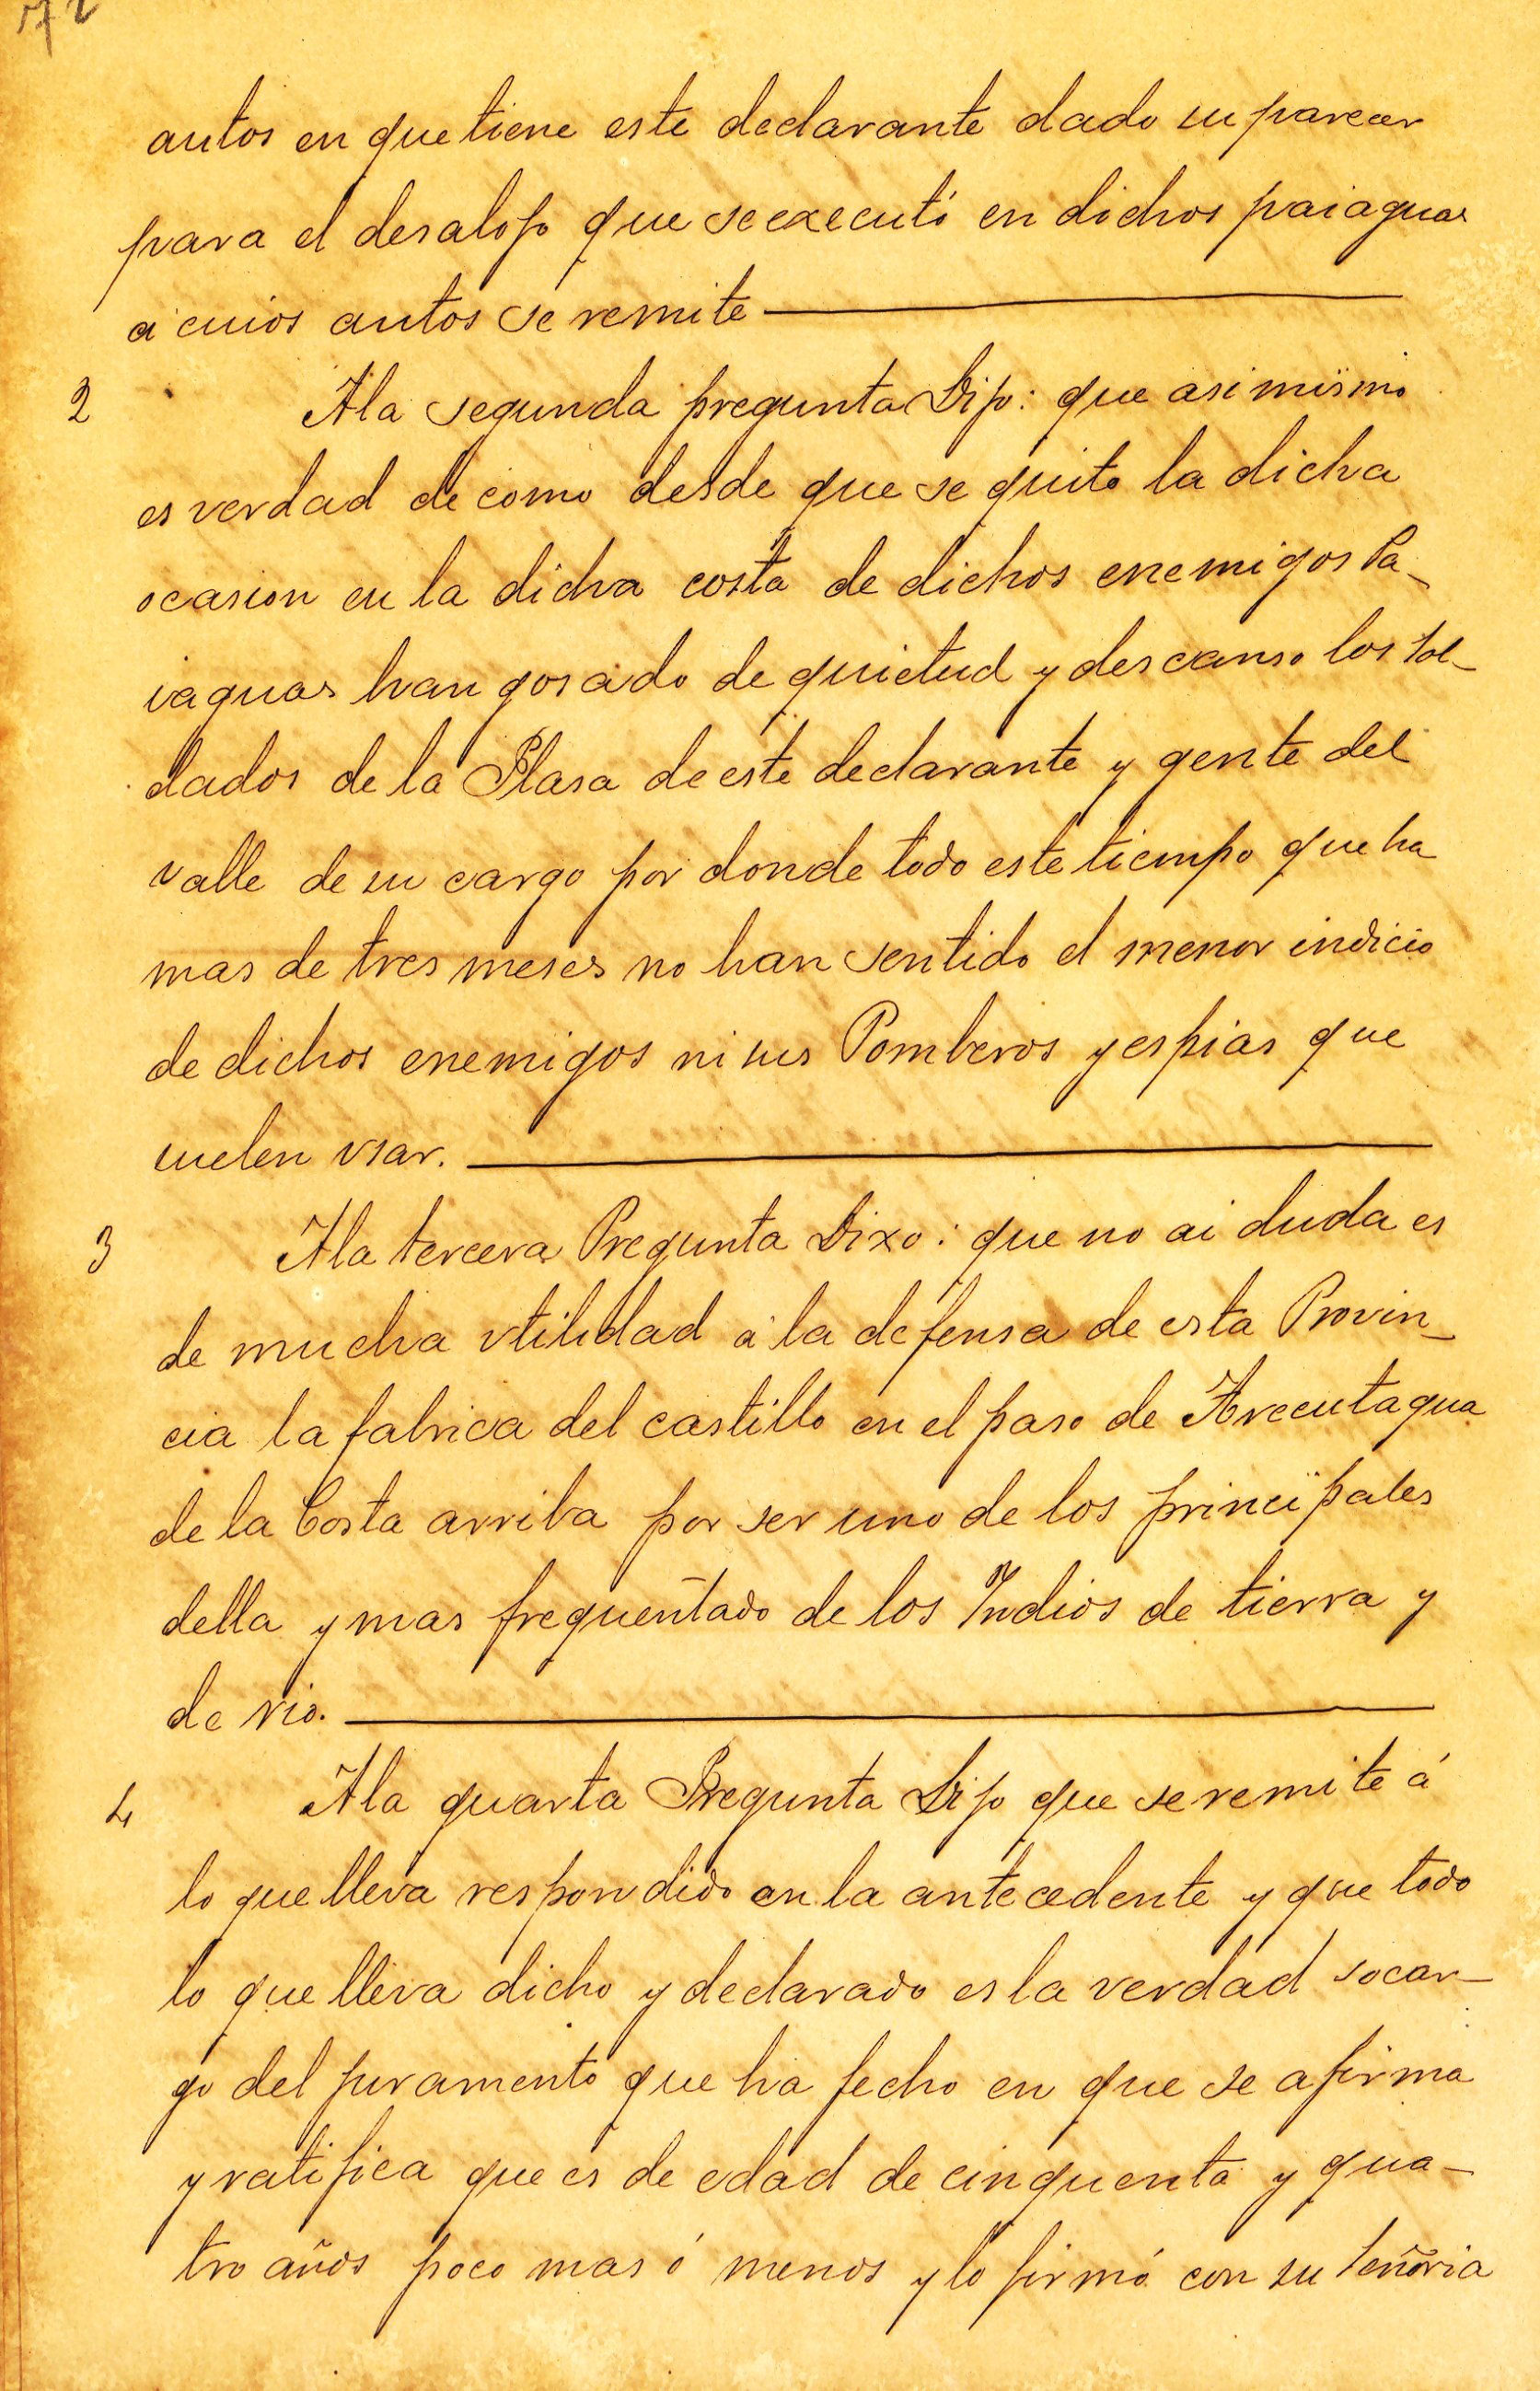 72
autos en que tiene este declarante dado su parecer
para el desalojo que se executó en dichos paiaguas
a cuios autos se remite
2 A la segunda pregunta Dijo: que asi mismo
es verdad de como desde que se quito la dicha
ocasion en la dicha costa de dichos enemigos Pa-
iaguas han gosado de quietud y descanso los sol-
dados de la Plasa de este declarante y gente del
valle de su cargo por donde todo este tiempo que ha
mas de tres meses no han sentido el menor indicio
de dichos enemigos ni sus Pomberos y espias que
suelen vsar.
3 A la tercera Pregunta Dixo: que no ai duda es
de mucha vtilidad a la defensa de esta Provin-
cia la fabrica del castillo en el paso de Arecutagua
de la Costa arriba por ser uno de los principales
della y mas frequentado de los Indios de tierra y
de rio.
4 A la quarta Pregunta Dijo que se remite á
lo que lleva respondido en la antecedente y que todo
lo que lleva dicho y declarado es la verdad socar-
go del juramento que ha fecho en que se afirma
y ratifica que es de edad de cinquenta y qua-
tro años poco mas ó menos y lo firmó con su señoria